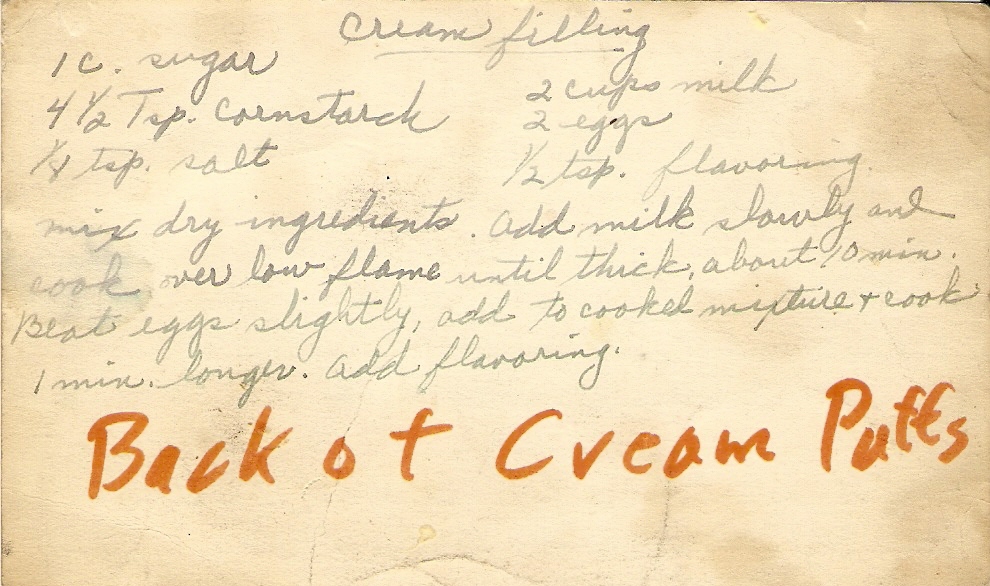 Cream filling
1 c. sugar
2 cups milk
4 1/2 Tsp. Cornstarch
2 eggs
1/4 tsp. salt
1/2 tsp. flavoring.
mix dry ingredients. Add milk slowly and
cook over low flame until thick, about 10 min.
Beat eggs slightly, add to cooked mixture + cook
1 min. longer. Add flavoring.
Back of Cream Puffs